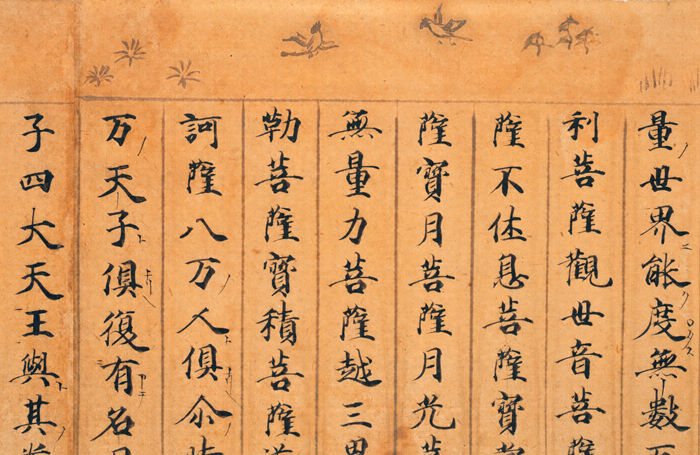 量世界能度無數
利菩薩觀世音菩薩
薩不休息菩薩寶
薩寶月菩薩月光
無量力菩薩越三
勒菩薩寶積菩薩
訶薩八万人俱尒
万天子俱復有名
子四大天王與其